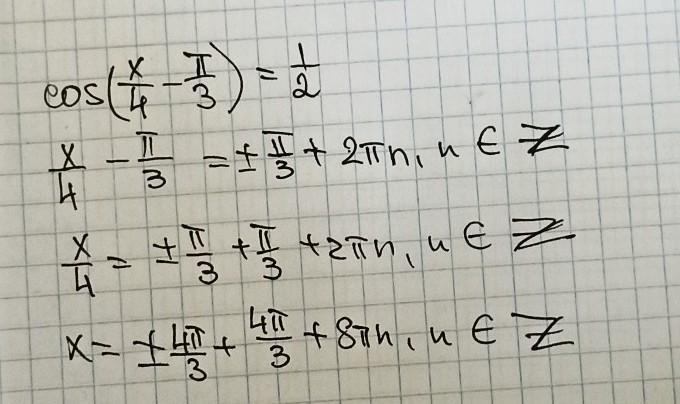 cos(x/4 - π/3) = 1/2
x/4 - π/3 = ± π/3 + 2πn, n ∈ Z
x/4 = ± π/3 + π/3 + 2πn, n ∈ Z
x = ± 4π/3 + 4π/3 + 8πn, n ∈ Z